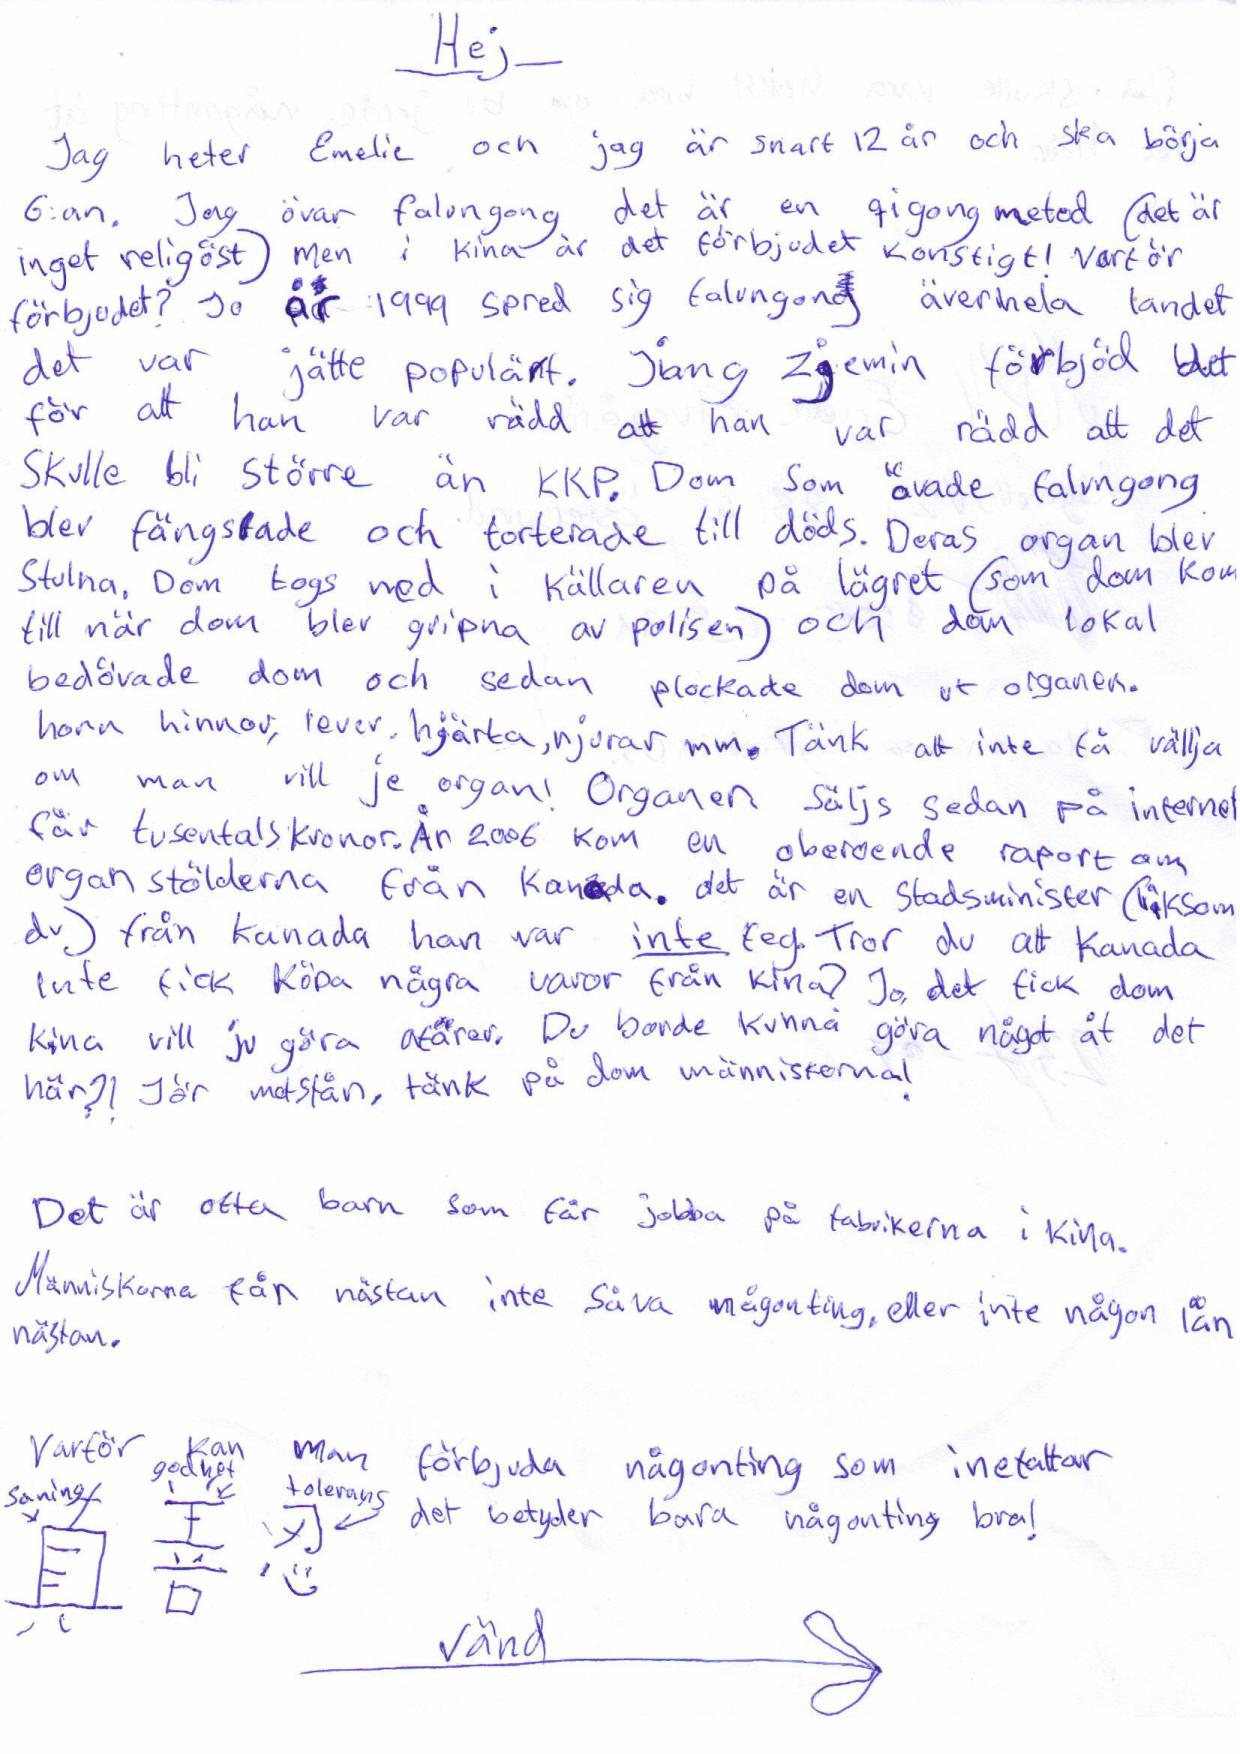 Hej
Jag heter Emelie och jag är snart 12 år och ska börja
6:an. Jag övar falungong det är en qigong metod (det är
inget religöst) men i kina är det förbjudet konstigt! Varför
förbjudet? Jo år 1999 spred sig falungong äverhela landet
det var jätte populärt. Jiang Zjemin förbjöd det
för att han var rädd att han var rädd att det
skulle bli större än KKP. Dom som övade falungong
blev fängslade och torterade till döds. Deras organ blev
stulna. Dom togs ned i källaren på lägret (som dom kom
till när dom blev gripna av polisen) och dän lokal
bedövade dom och sedan plockade dom ut organen.
horn hinnor, lever, hjärta, njurar mm. Tänk att inte få vällja
om man vill je organ! Organen säljs sedan på internet
får tusentals kronor. År 2006 kom en oberoende raport om
organ stölderna från Kanada. det är en stadsminister (liksom
du) från kanada han var inte feg. Tror du att Kanada
inte fick köpa några varor från kina? Jo, det fick dom
kina vill ju göra afärer. Du borde kunna göra något åt det
här?! Jör motstån, tänk på dom människorna!
Det är ofta barn som får jobba på fabrikerna i kina.
Människorna får nästan inte såva någonting, eller inte någon lån
nästan.
Varför kan man förbjuda någonting som inefattar
det betyder bara någonting bra!
saning
godhet
tolerans
真
善
忍
vänd